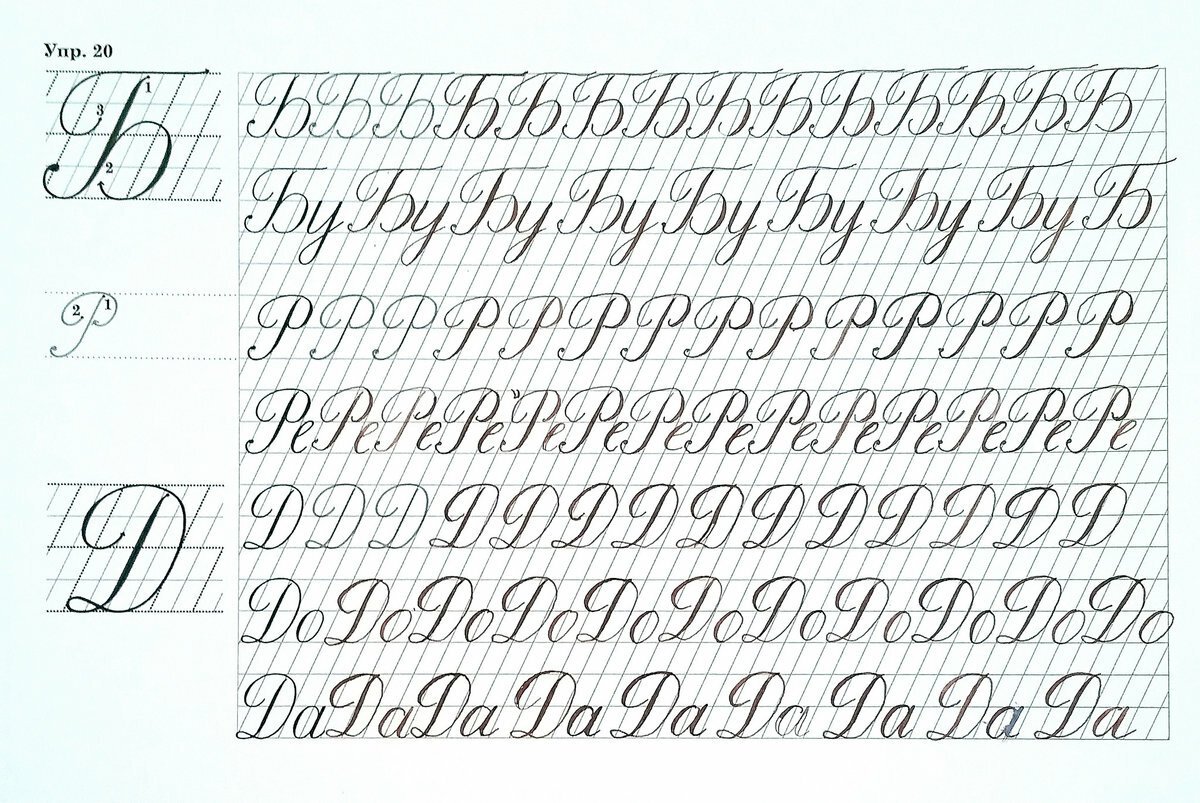 Упр. 20
Б 1 2 3
Б Б Б Б Б Б Б Б Б Б Б Б Б Б
Бу Бу Бу Бу Бу Бу Бу Бу Б
Р 1 2
Р Р Р Р Р Р Р Р Р Р Р Р Р Р
Ре Ре Ре Ре Ре Ре Ре Ре Ре Ре Ре Ре Ре Ре
Д
Д Д Д Д Д Д Д Д Д Д Д Д Д Д
До До До До До До До До До До До
Да Да Да Да Да Да Да Да Да